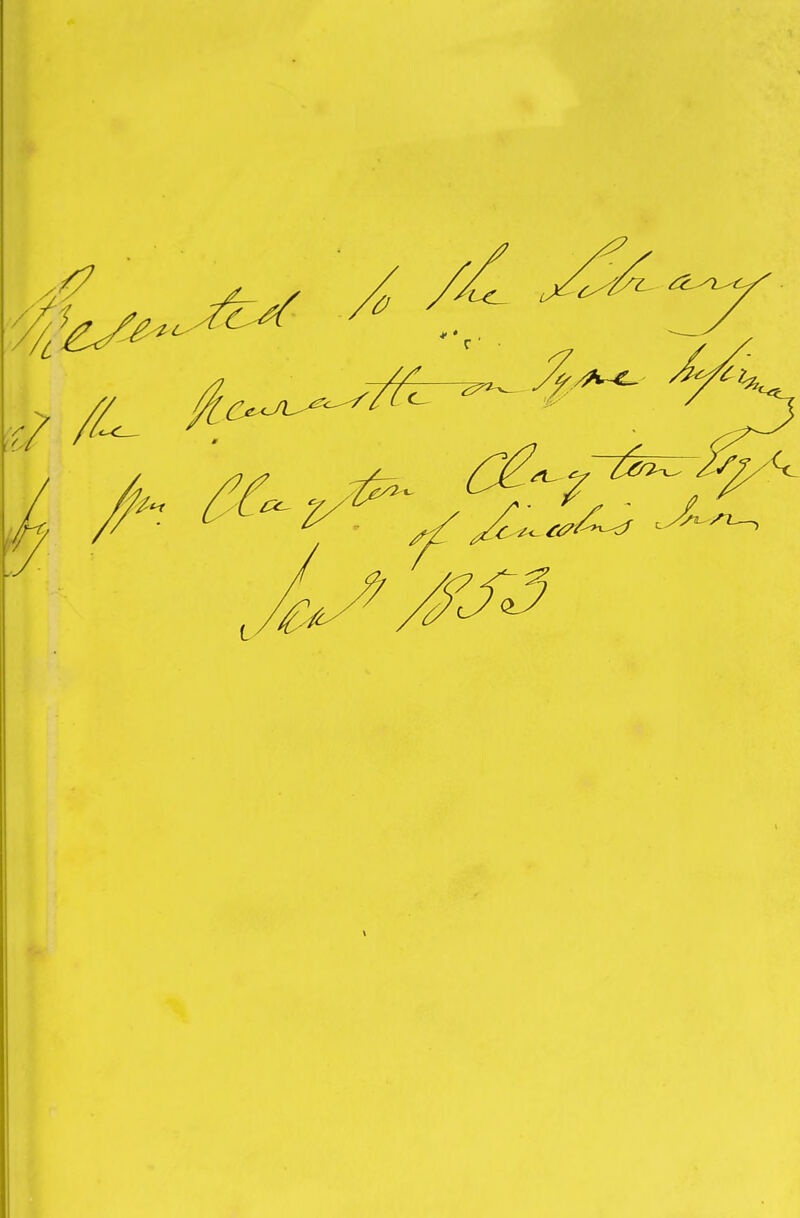 Presented to the Library
of the Newcastle on Tyne Infirmary
by Jno: Clayton Clayton Esqr
of Lincolns Inn
Sept 1853